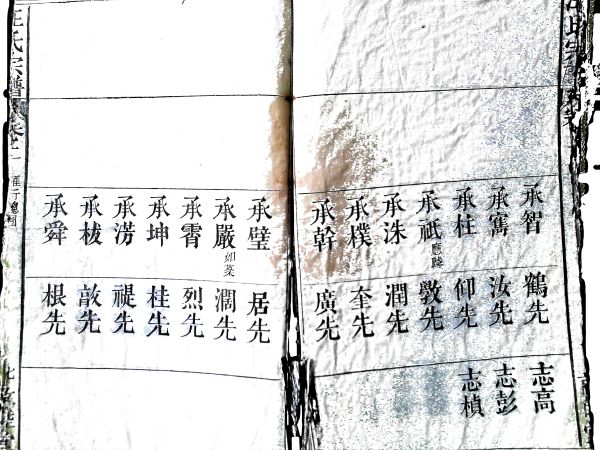 承智
承寯
承柱
承祇
承洙
承樸
承幹
鶴先
汝先
仰先
斆先
潤先
奎先
廣先
志高
志彭
志楨
汪氏宗譜
卷之一
承璧
承嚴
如藥
承霄
承坤
承淓
承栻
承舜
居先
澗先
烈先
桂先
禔先
敳先
根先